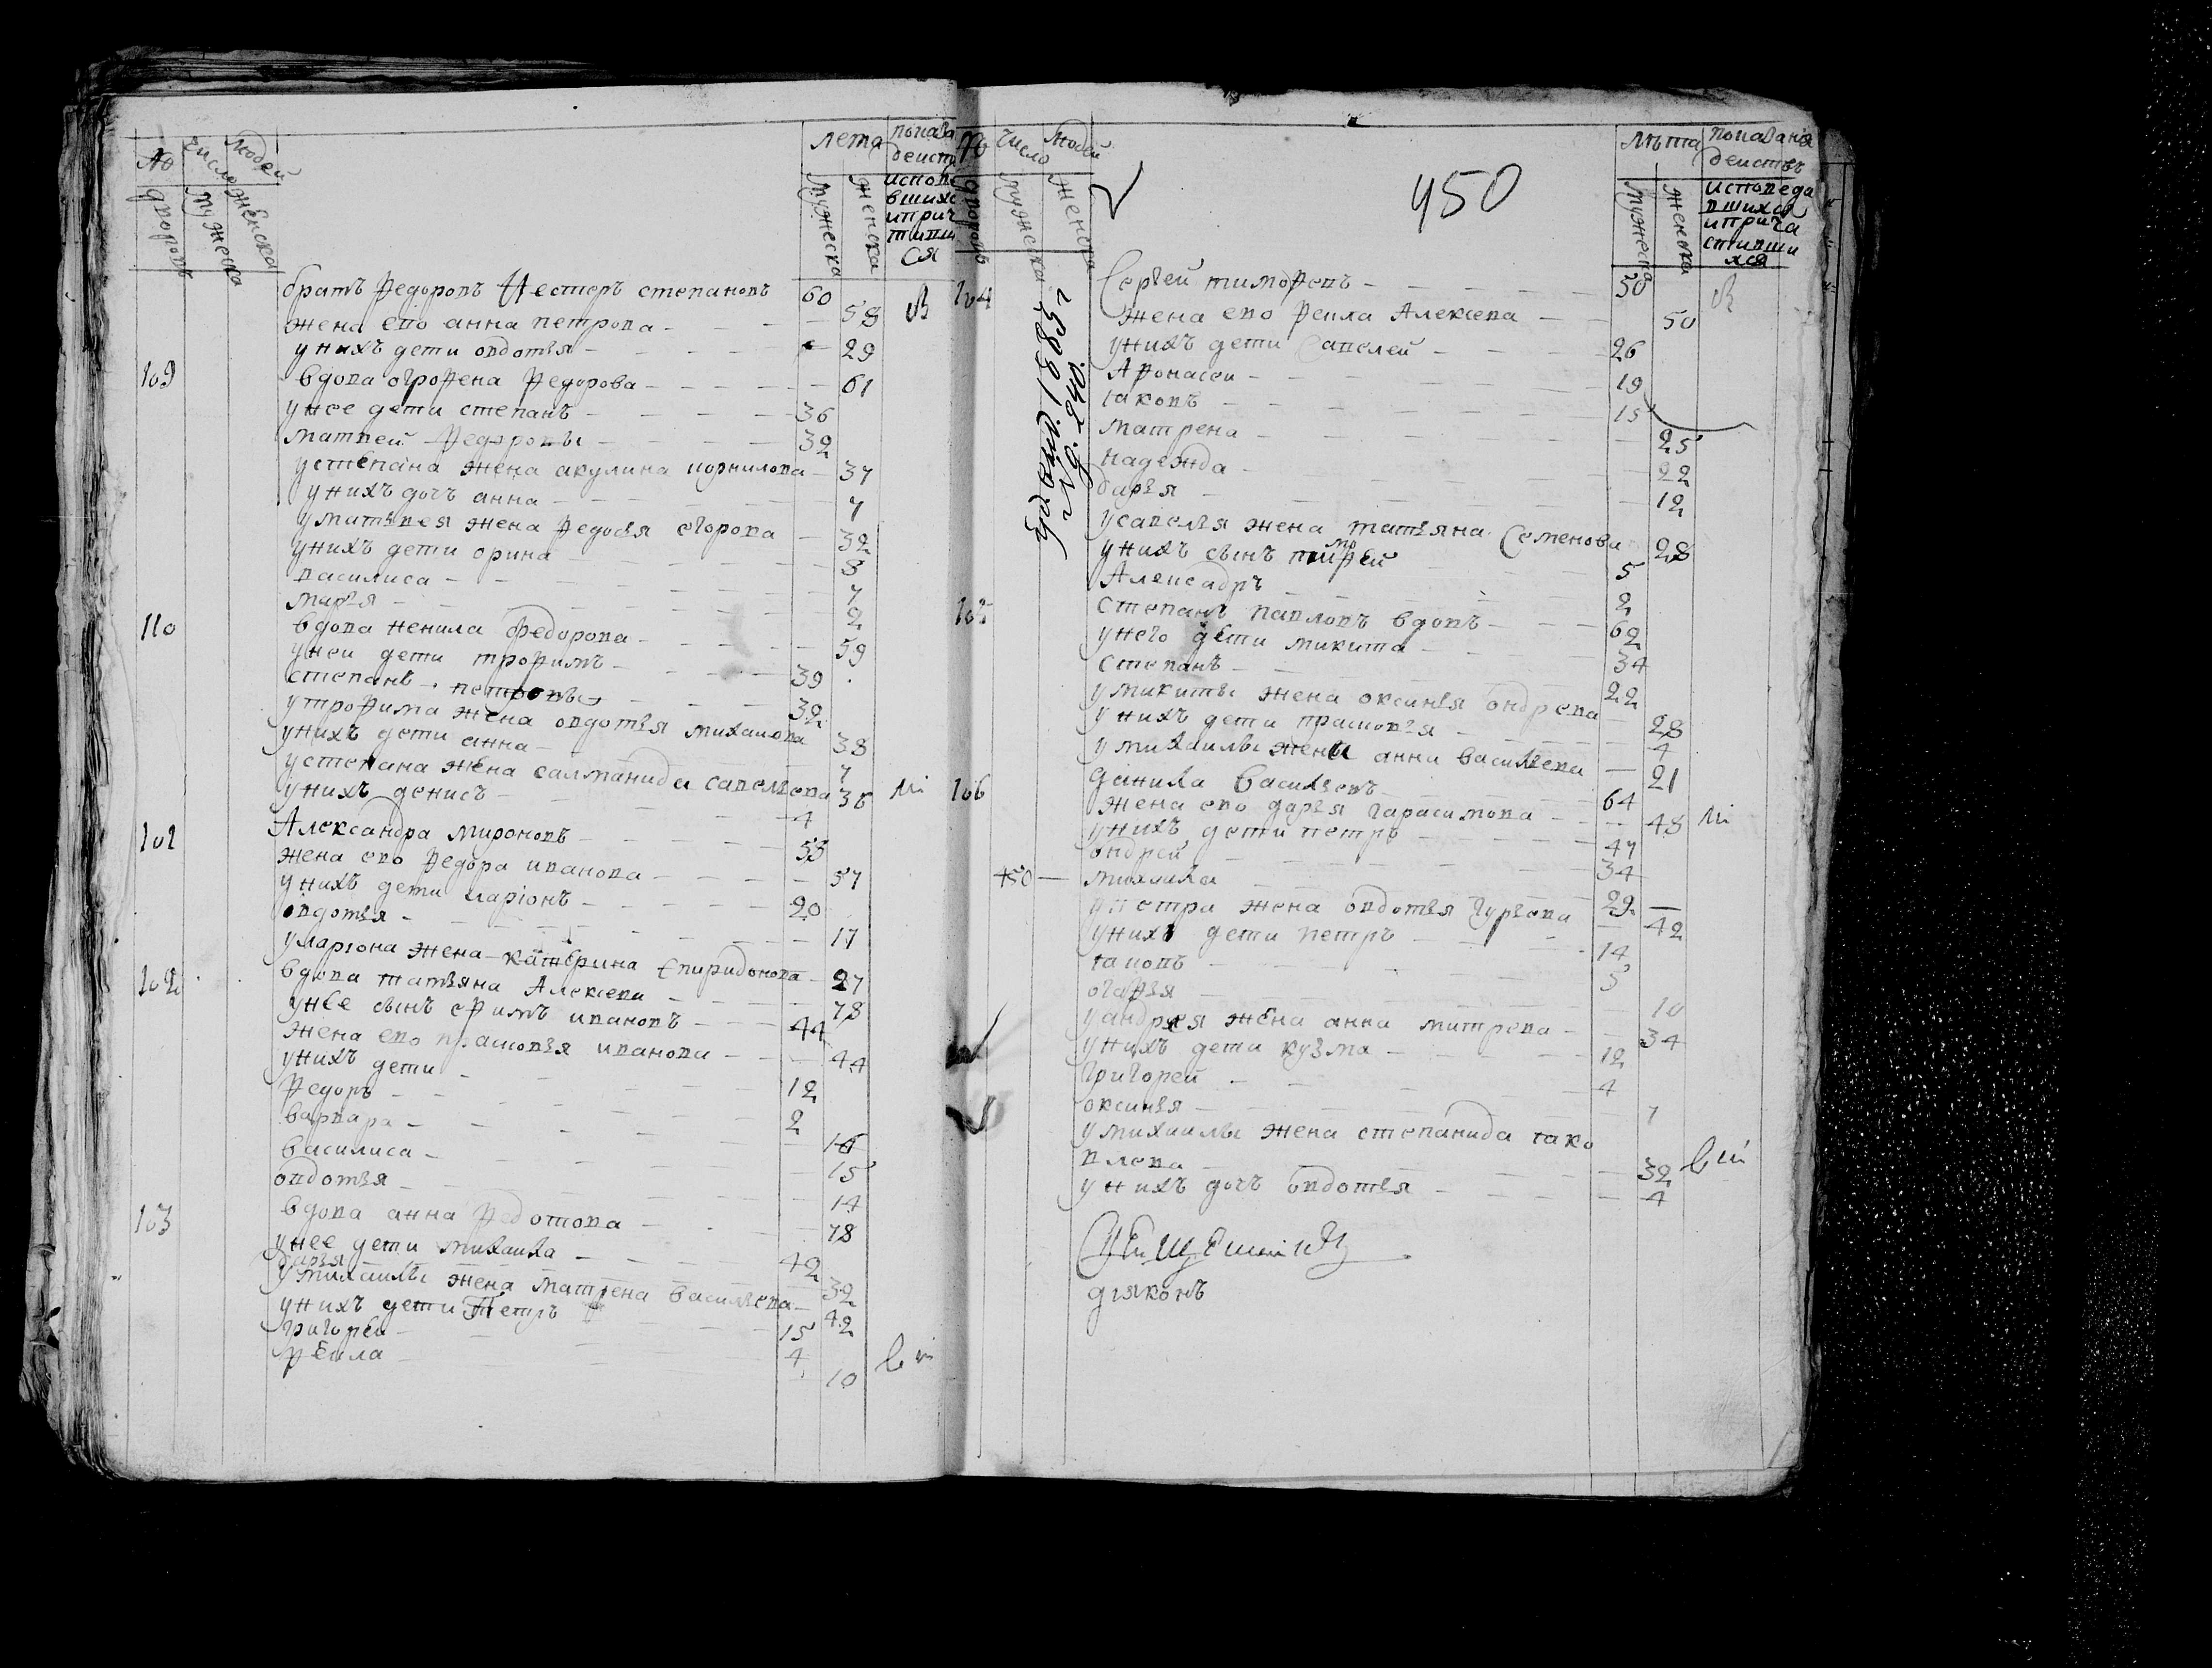 № дворовъ
число людей
мужеска
женска
лета
мужеска
женска
показа
деиств
испове
вшихс
иприч
тивш
ся
братъ федоровъ Нестеръ степановъ 60
жена ево анна петрова 58
унихъ дети овдотья 29
109 вдова огрофена федорова 61
унее дети степанъ 36
матвей федоровы 32
устепана жена акулина корнилова 37
унихъ дочь анна 7
уматвея жена федосья егорова 32
унихъ дети орина 8
василиса 7
марья 2
110 вдова ненила федорова 59
уней дети трофимъ 39
степанъ петровы 32
утрофима жена овдотья михаилова 38
унихъ дети анна 7
устепана жена салманида савельева 36
унихъ денисъ 4
101 Александра мироновъ 58
жена ево федора иванова 57
унихъ дети ларионъ 20
овдотья 17
улариона жена катерина спиридонова 27
102 вдова татьяна Алексеева 78
унее сынъ ефимъ ивановъ 44
жена ево прасковья иванова 44
унихъ дети
федоръ 12
варвара 2
16
василиса 15
овдотья 14
103 вдова анна федотова 78
унее дети михаила 42
дарья 32
умихаилы жена матрена васильева 42
унихъ дети Петръ 15
григорей 4
фекла 10
№ дворовъ
число людей
мужеска
женска
450
лѣта
мужеска
женска
показания
деиствъ
исповеда
вшихся
иприча
стивши
хся
104 Сергей тимофевъ 50
жена ево фекла Алексева 50
унихъ дети Савелей 26
Афонасеи 19
іаковъ 15
матрена 25
надежда 22
дарья 12
усавелья жена татьяна Семенова 28
унихъ сынъ тимофей 5
Алексадръ 2
105 степанъ павловъ вдовъ 62
унего дети микита 34
степанъ 22
умикиты жена оксинья ондрева 28
унихъ дети прасковья 4
умихаилы жена анна васильева 21
106 данила васильевъ 64
жена ево дарья гарасимова 48
унихъ дети петръ 47
ондрей 34
450 михаила 29
упетра жена овдотья гурьева 42
унихъ дети петръ 14
іаковъ 5
огафья 10
уандрея жена анна митрева 34
унихъ дети кузма 12
григорей 4
оксинья 7
умихаилы жена степанида іако
влева 32
унихъ дочь овдотья 4
дияконъ